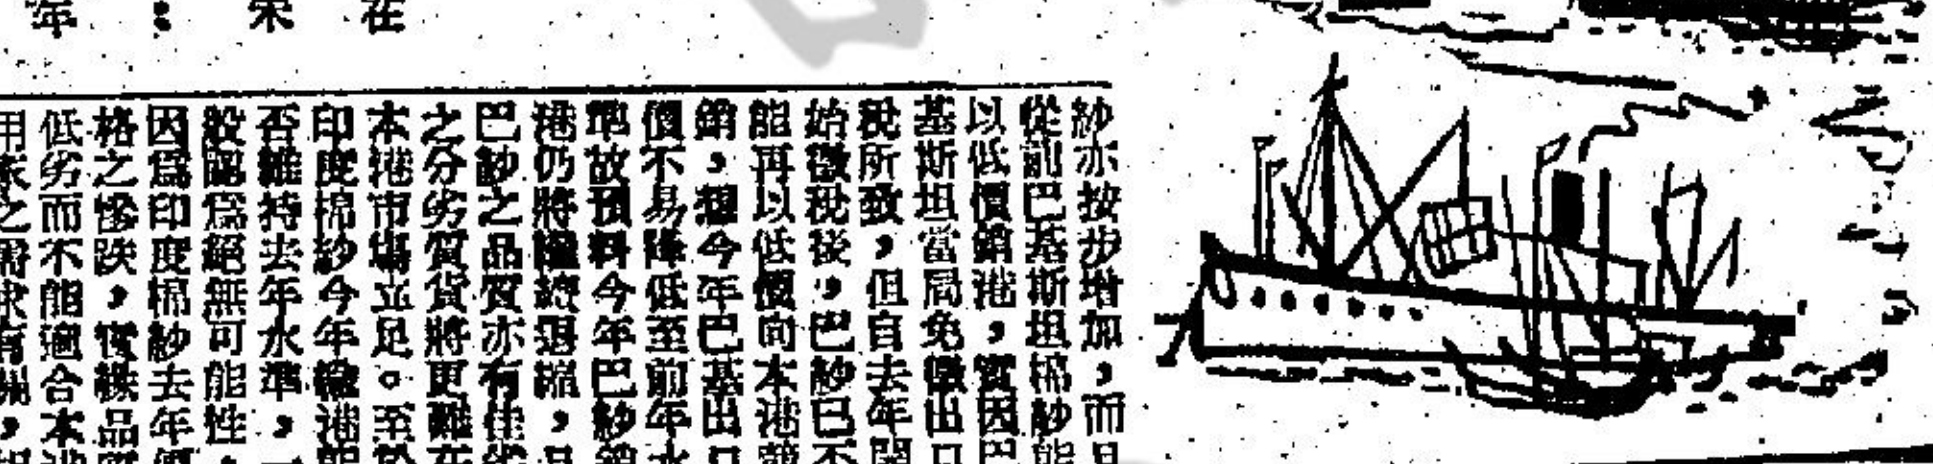 在
宋
：
年
紗亦按步增加，而且
從前巴基斯坦棉紗能
以低價銷港，實因巴
基斯坦當局免徵出口
稅所致，但自去年開
始徵稅後，巴紗已不
能再以低價向本港競
銷，想今年巴基出口
價不易降低至前年水
準故預料今年巴紗銷
港仍將繼續退縮，且
巴紗之品質亦有佳劣
之分劣質貨將更難在
本港市場立足。至於
印度棉紗今年輸港能
否維持去年水準，一
般認爲絕無可能性，
因爲印度棉紗去年價
格之慘跌，實緣品質
低劣而不能適合本港
用家之需求有關，